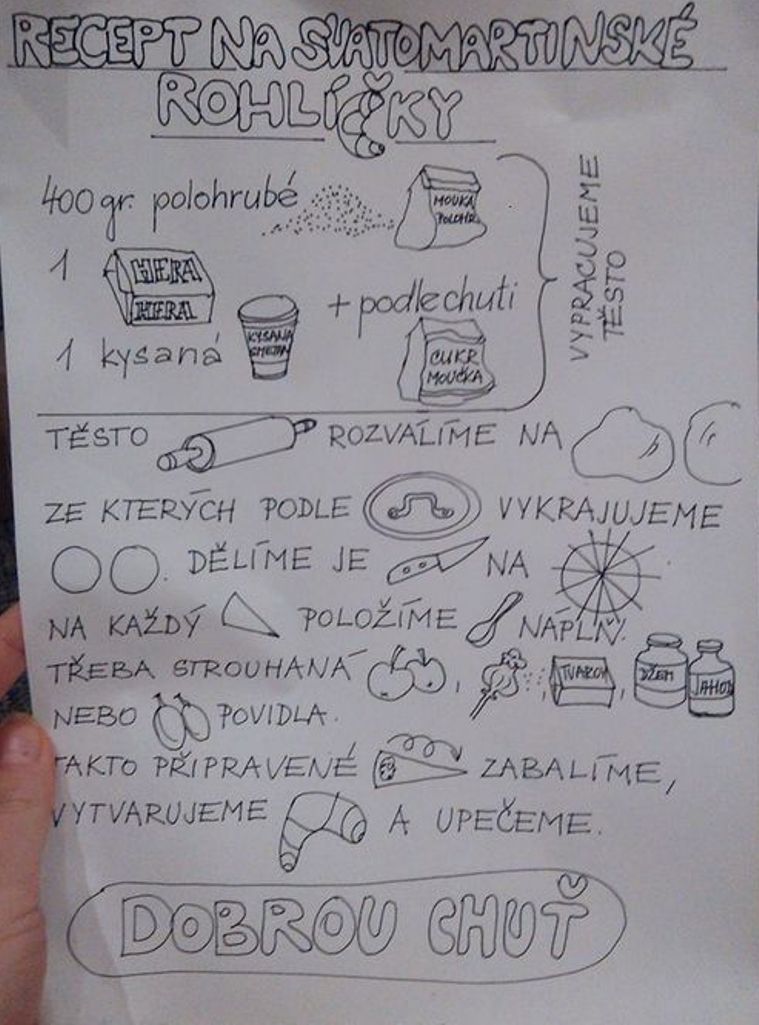 RECEPT NA SVATOMARTINSKÉ
ROHLÍČKY
400 gr. polohrubé
MOUKA
POLOHR.
1 HERA
HERA
+ podle chuti
1 kysaná
KYSANÁ
SMETAN
CUKR
MOUČKA
VYPRACUJEME
TĚSTO
TĚSTO ROZVÁLÍME NA
ZE KTERÝCH PODLE VYKRAJUJEME
. DĚLÍME JE NA
NA KAŽDÝ POLOŽÍME NÁPLŇ.
TŘEBA STROUHANÁ , , TVAROH , DŽEM JAHOD
NEBO POVIDLA.
TAKTO PŘIPRAVENÉ ZABALÍME,
VYTVARUJEME A UPEČEME.
DOBROU CHUŤ